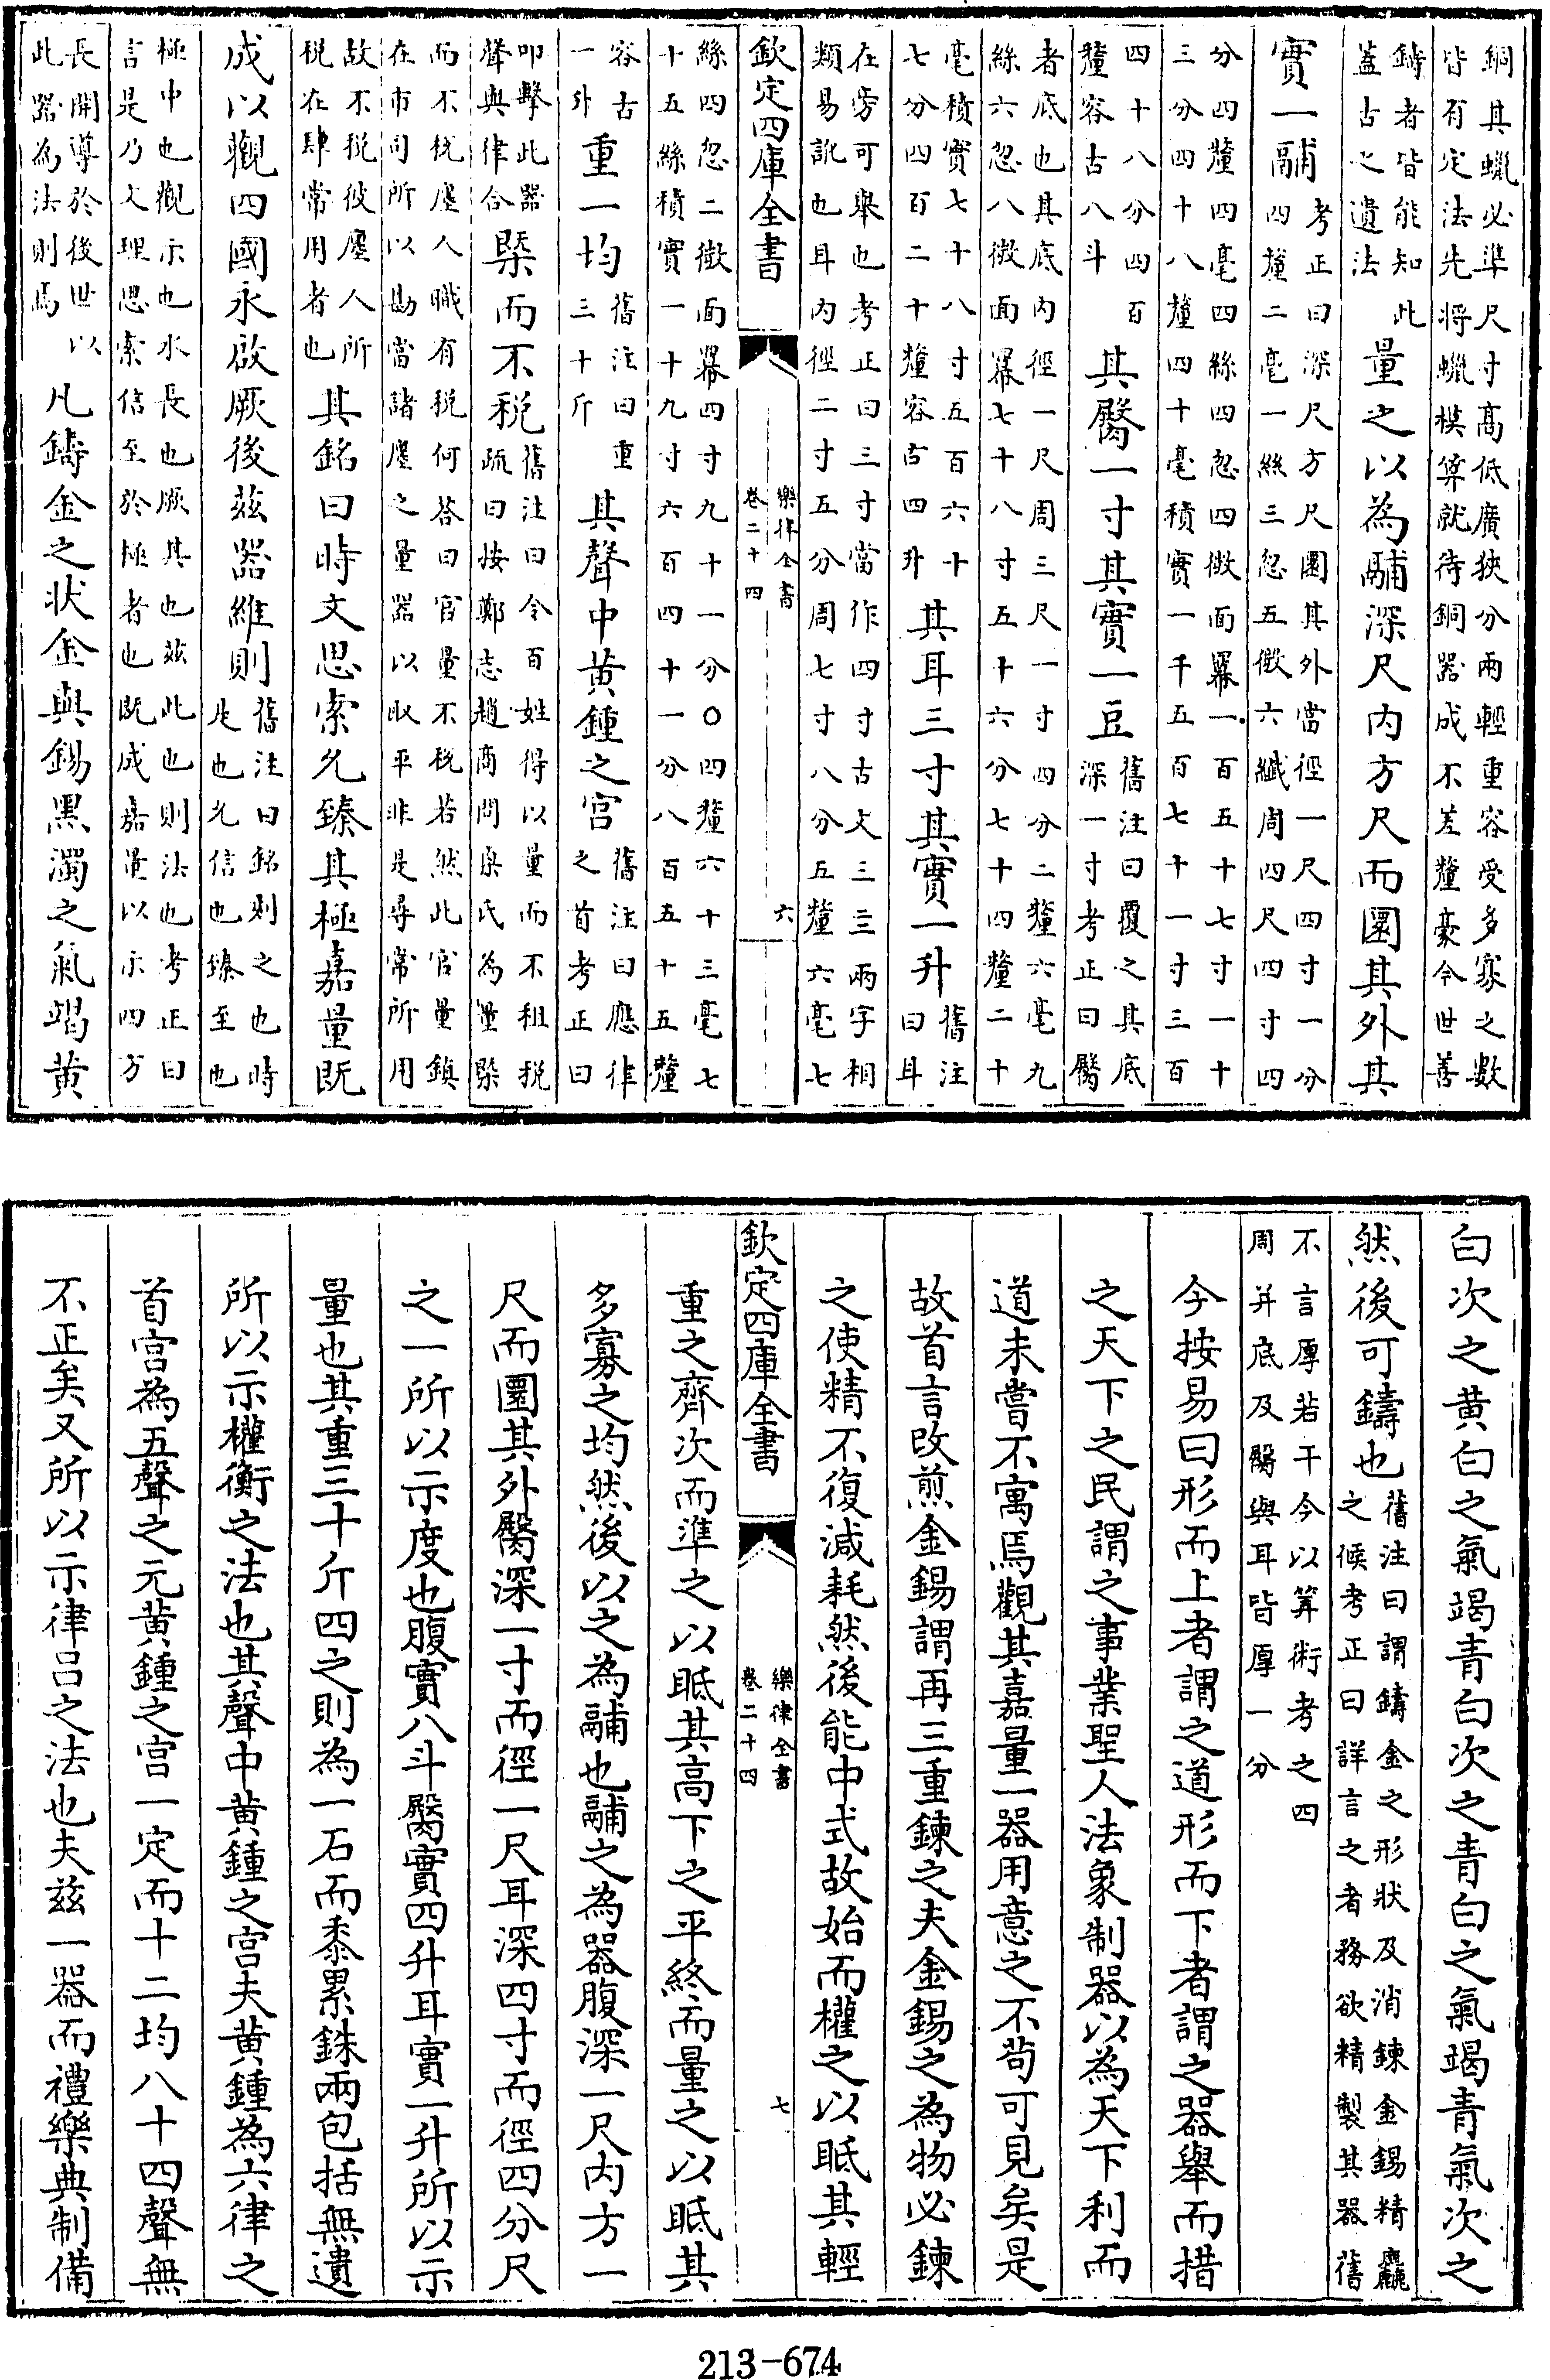 銅其蠟必準尺寸髙低廣狹分兩輕重容受多寡之數
皆有定法先將蠟模算就待銅器成不差釐豪今世善
鑄者皆能知此
蓋古之遺法
量之以為鬴深尺内方尺而圜其外其
實一鬴
考正曰深尺方尺圜其外當徑一尺四寸一分
四釐二毫一絲三忽五微六纖周四尺四寸四
分四釐四毫四絲四忽四微面羃一百五十七寸一十
三分四十八釐四十毫積實一千五百七十一寸三百
四十八分四百
釐容古八斗
其臋一寸其實一豆
舊注曰覆之其底
深一寸考正曰臋
者底也其底内徑一尺周三尺一寸四分二釐六毫九
絲六忽八微面羃七十八寸五十六分七十四釐二十
毫積實七十八寸五百六十
七分四百二十釐容古四升
其耳三寸其實一升
舊注
曰耳
在旁可舉也考正曰三寸當作四寸古文三亖兩字相
類易訛也耳内徑二寸五分周七寸八分五釐六毫七
欽定四庫全書
樂律全書
卷二十四
六
絲四忽二微面羃四寸九十一分〇四釐六十三毫七
十五絲積實一十九寸六百四十一分八百五十五釐
容古
一升
重一均
舊注曰重
三十斤
其聲中黄鍾之宫
舊注曰應律
之首考正曰
叩擊此器
聲與律合
㮣而不税
舊注曰令百姓得以量而不租税
疏曰按鄭志趙商問㮚氏為量㮣
而不税廛人職有税何荅曰官量不税若然此官量鎮
在市司所以勘當諸廛之量器以取平非是尋常所用
故不税彼廛人所
税在肆常用者也
其銘曰時文思索允臻其極嘉量既
成以觀四國永啟厥後兹器維則
舊注曰銘刻之也時
是也允信也臻至也
極中也觀示也永長也厥其也兹此也則法也考正曰
言是乃文理思索信至於極者也既成嘉量以示四方
長開導於後世以
此器為法則焉
凡鑄金之狀金與錫黑濁之氣竭黄
白次之黄白之氣竭青白次之青白之氣竭青氣次之
然後可鑄也
舊注曰謂鑄金之形狀及消鍊金錫精麤
之候考正曰詳言之者務欲精製其器舊
不言厚若干今以筭術考之四
周并底及臋與耳皆厚一分
今按易曰形而上者謂之道形而下者謂之器舉而措
之天下之民謂之事業聖人法象制器以為天下利而
道未嘗不寓焉觀其嘉量一器用意之不苟可見矣是
故首言改煎金錫謂再三重鍊之夫金錫之為物必鍊
之使精不復減耗然後能中式故始而權之以眡其輕
欽定四庫全書
樂律全書
卷二十四
七
重之齊次而準之以眡其高下之平終而量之以眡其
多寡之均然後以之為鬴也鬴之為器腹深一尺内方一
尺而圜其外臋深一寸而徑一尺耳深四寸而徑四分尺
之一所以示度也腹實八斗臋實四升耳實一升所以示
量也其重三十斤四之則為一石而黍累銖兩包括無遺
所以示權衡之法也其聲中黄鍾之宫夫黄鍾為六律之
首宫為五聲之元黄鍾之宫一定而十二均八十四聲無
不正矣又所以示律呂之法也夫兹一器而禮樂典制備
213-674